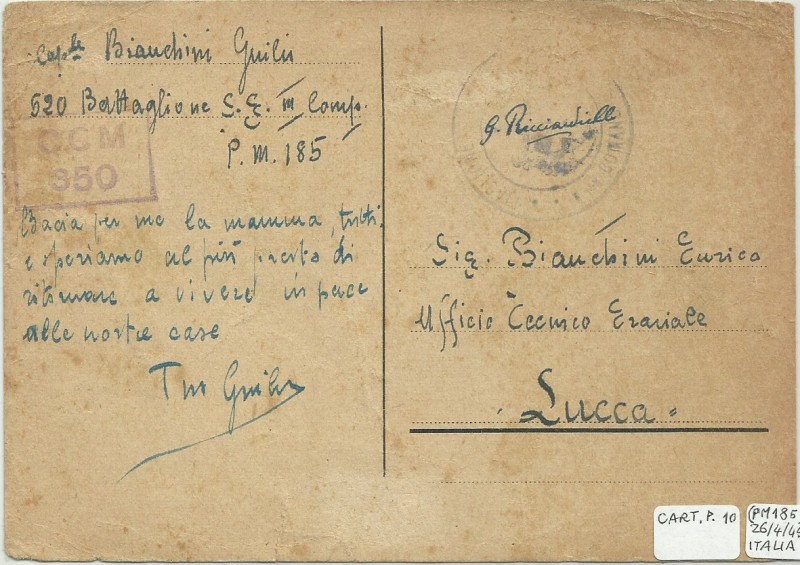 Cap.le Bianchini Guilio
520 Battaglione S.G. III Comp.
P.M. 185
C.C.M
350
Bacia per me la mamma, tutti
e speriamo al più presto di
ritornare a vivere in pace
alle nostre case
Tuo Guilio
G. Ricciardelli
Sig. Bianchini Enrico
Ufficio Tecnico Erariale
Lucca
CART. P. 10
(PM185
26/4/45
ITALIA